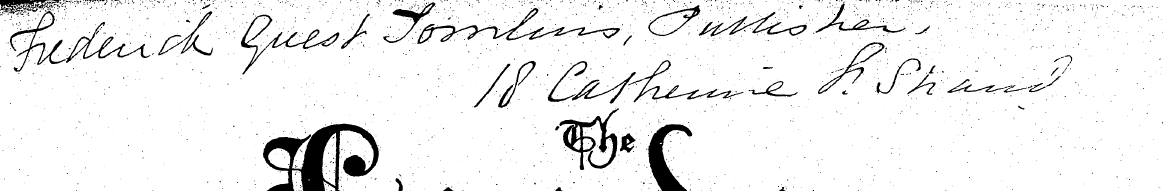 Frederick Guest Tomlins, Publisher,
18 Catherine St. Strand
The